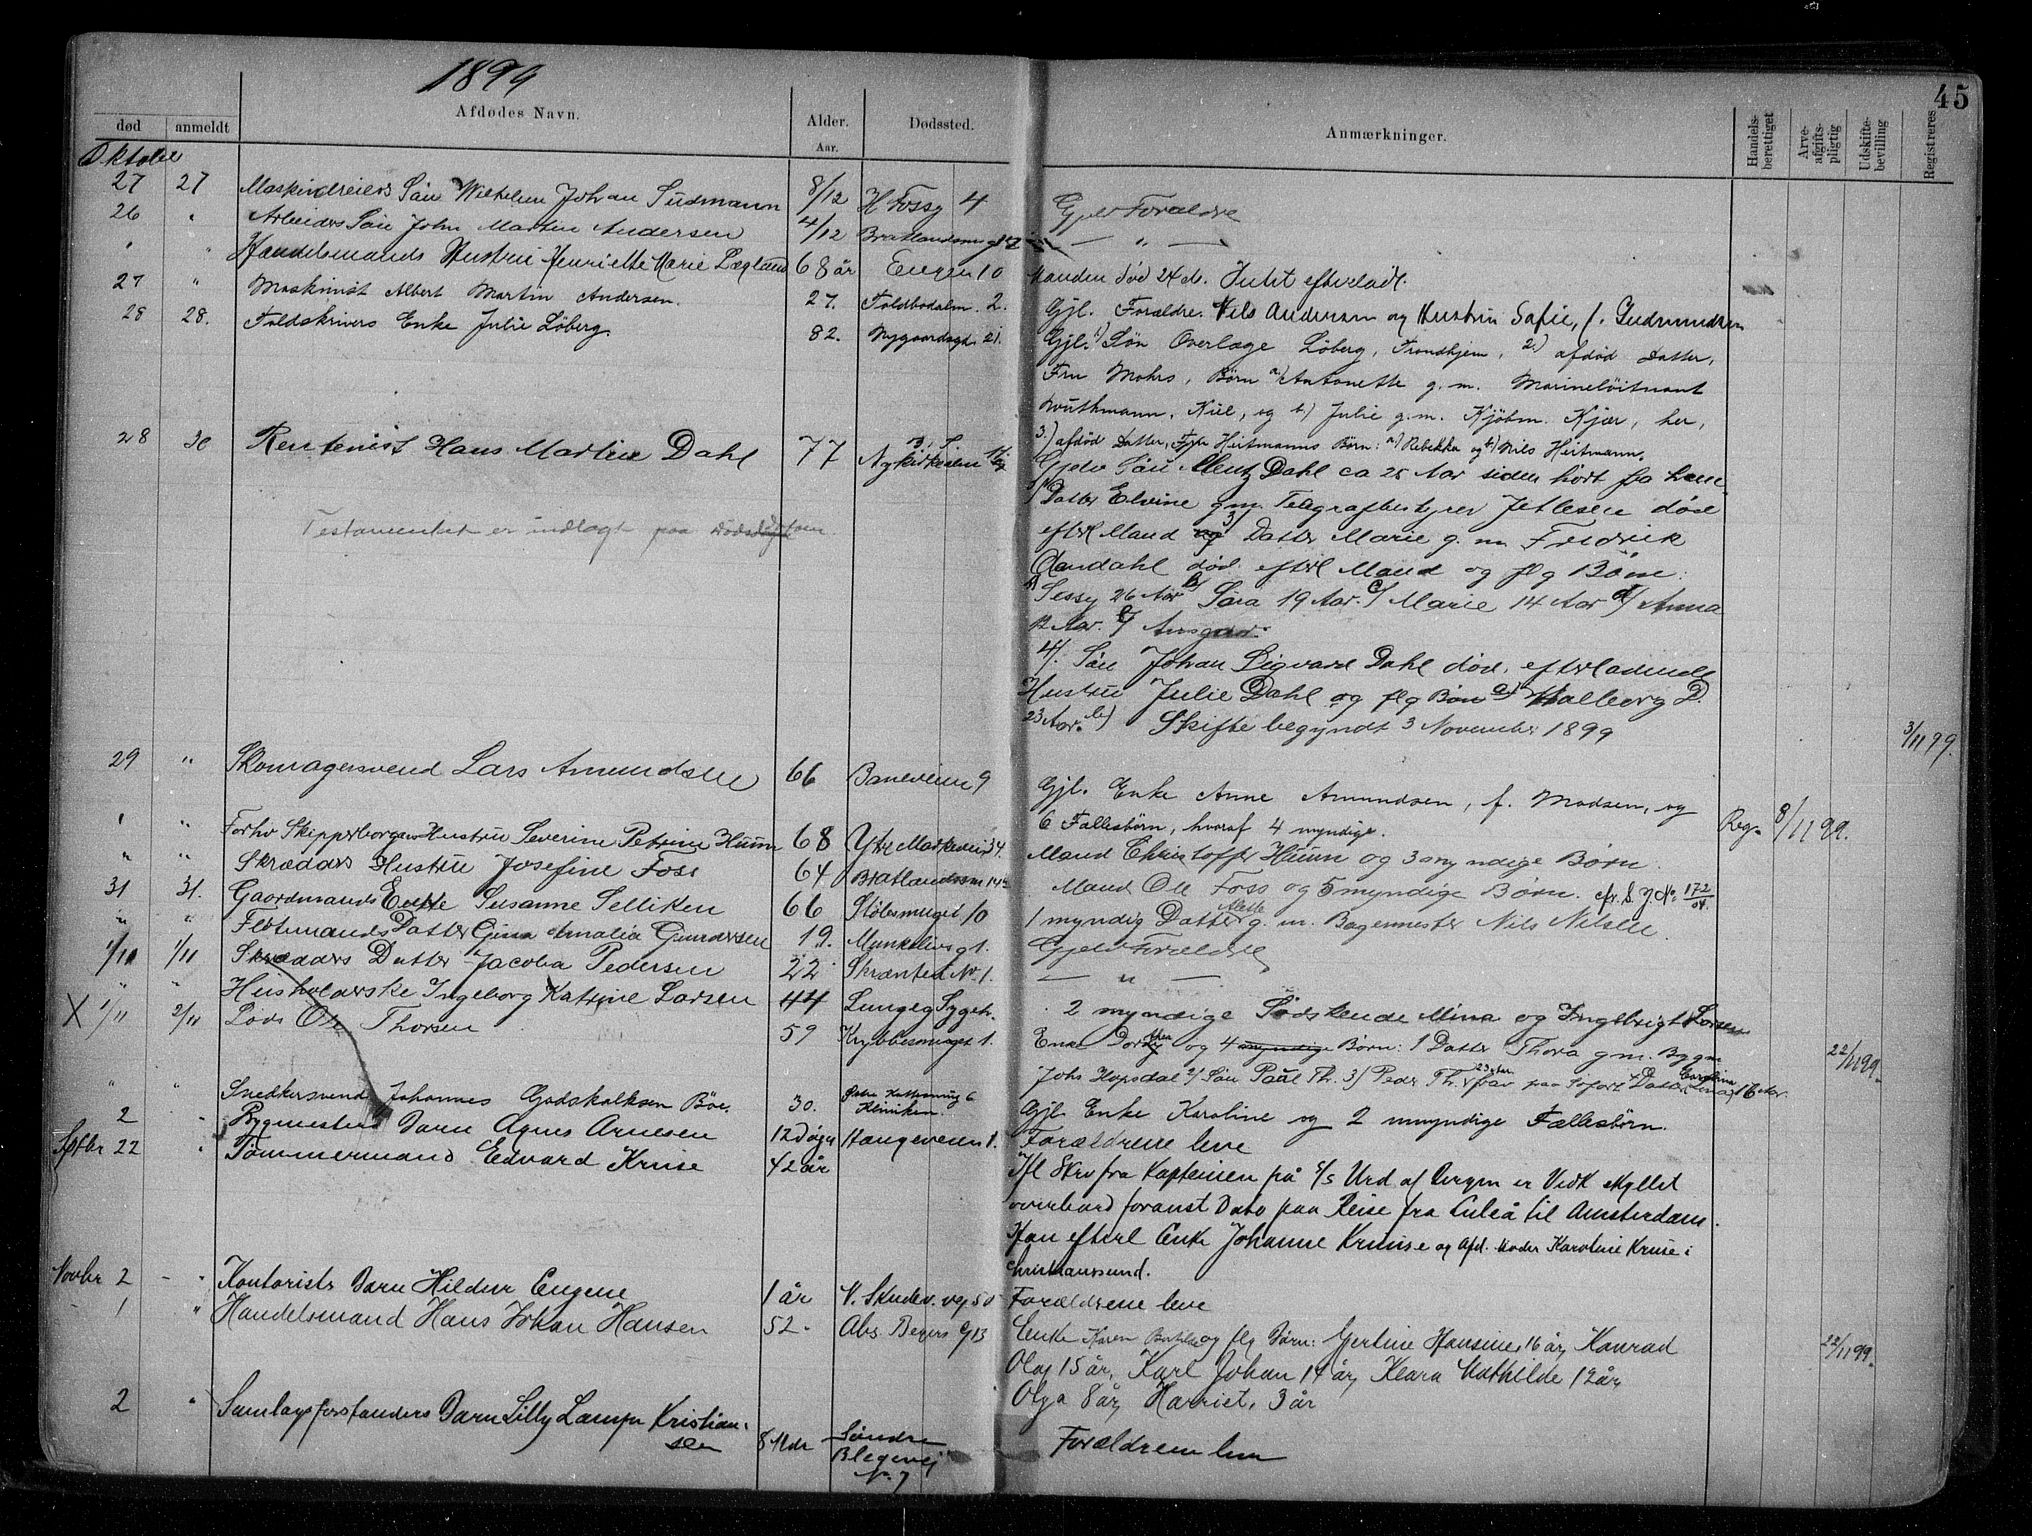 1899
45
død anmeldt Afdødes Navn. Alder. Aar. Dødssted. Anmærkninger. Handels-berettiget Arve-afgifts-pligtig Udskifte-bevilling Registreres
Oktober
27 27 Maskindreiers Søn Wilhelm Johan Sudmann 8/12 H Fossg 4 Gjelv Forældre
26 " Arbeiders Søn John Martin Andersen 4/12 Bratlandsmug — " —
" " Handelsmands Hustru Henriette Marie Lægland 68 år Engen 10 Manden død 24 ds. Intet efterladt.
27 " Maskinist Albert Martin Andersen. 27. Toldbodalm. 2. Gjl. Forældre. Nils Andersen og Hustru Sofie, f. Gudmundsen
28 28. Toldskrivers Enke Julie Løberg. 82. Nygaardsgt. 21. Gjl. 1) Søn Overlæge Løberg, Trondhjem, 2.) afdød Datter,
Fru Mohrs, Børn a) Antonette g. m. Marineløitnant
Wuthmann, Kiel, og b.) Julie g.m. Kjøbm. Kjær, her,
3.) afdød Datter, Heitmanns Børn: a) Rebekka og b) Nils Heitmann.
28 30 Rentenist Hans Martin Dahl 77 Nykirkealm Gjelv Søn Mentz Dahl ca 25 Aar siden hørt fra ham
2/ Datter Elvine gm. Telegrafbestyrer Jetlesen død
Testamentet er indlagt paa Dødsdagen
efterl Mand og 3/ Datter Marie g. m. Fredrik
Aandahl død. efterl Mand og flg Børn:
a/ Sessy 26 Aar b/ Sara 19 Aar. c/ Marie 14 Aar d/ Anna
12 Aar. e/ Ansgar.
4/. Søn Johan Sigvard Dahl død, efterladende
Hustru Julie Dahl og flg Børn a) Valborg D.
23 Aar. b) Skifte begyndt 3 November 1899 3/11 99.
29 " Skomagersvend Lars Amundsen 66 Baneveien 9 Gjl. Enke Anne Amundsen, f. Madsen, og
6 Fællesbørn, hvoraf 4 myndige. Reg. 8/11 99.
" " Forhv Skipperborgers Hustru Severine Petrine Huun 68 Ytre Markevei 34. Mand Christoffer Huun og 3 myndige Børn.
" " Skrædders Hustru Josefine Foss 64 Bratlandsm 14 Mand Ole Foss og 5 myndige Børn. cfr. S. J. No 172/04.
31 31. Gaardmands Enke Susanne Selliken 66 Støbesmuget 10 1 myndig Datter Alette g. m. Bagermester Nils Nilsen
" " Fløtmands Datter Gina Amalia Gundersen 19. Munkelivsgt. Gjelv Forældre
1/11 1/11 Skrædders Datter Jacoba Pedersen 22 Skrænten No 1. — " —
" " Husholderske Ingeborg Katrine Larsen 44 Lungeg Sygeh. 2 myndige Sødskende Mina og Ingebrigt Larsen
X 1/11 2/11 Lods Ole Thorsen 59 Krybbesmuget 1. Enke Dorthea og 4 myndige Børn: 1 Datter Thora gm. Bygm
Johs Hopsdal 2/ Søn Paul Th. 3/ Peder Th. 23 aar far paa Sofart Datter Caroline Lovise, 16 Aar. 22/11 99.
" " Snedkersvend Johannes Godskalksen Bøe. 30. Østre Kattesmug 6 Kliniken. Gjl. Enke Karoline og 2 umyndige Fællesbørn.
2 " Bygmesters Barn Agnes Arnesen 12 Døgn Haugeveien 1. Forældrene leve
Sptbr 22 " Tømmermand Edvard Kruse 42 år Ifl Skrv fra Kapteinen på S/S Urd af Bergen er Vedk skyllet
overbord foranst Dato paa Reise fra Luleå til Amsterdam.
Han efterl Enke Johanne Kruse og Afd. Moder Karoline Kruse i
Christianssund.
Novbr 2 - " Kontorists Barn Hildur Eugene 1 år N. Skudev. veg 50 Forældrene leve
- 1 " Handelsmand Hans Johan Hansen 52. Abs. Beyers G 13 Enke Karen Bertilde og flg Børn: Gjertine Hansine 16 år, Konrad
Olaj 15 år, Karl Johan 14 år, Klara Mathilde 12 år 22/11 99.
Olga 8 år, Harriet, 3 år
2 " Samlagsforstanders Barn Lilly Kristian-
sen 8 Mdr Søndre Blegevei N. 7 Forældrene leve